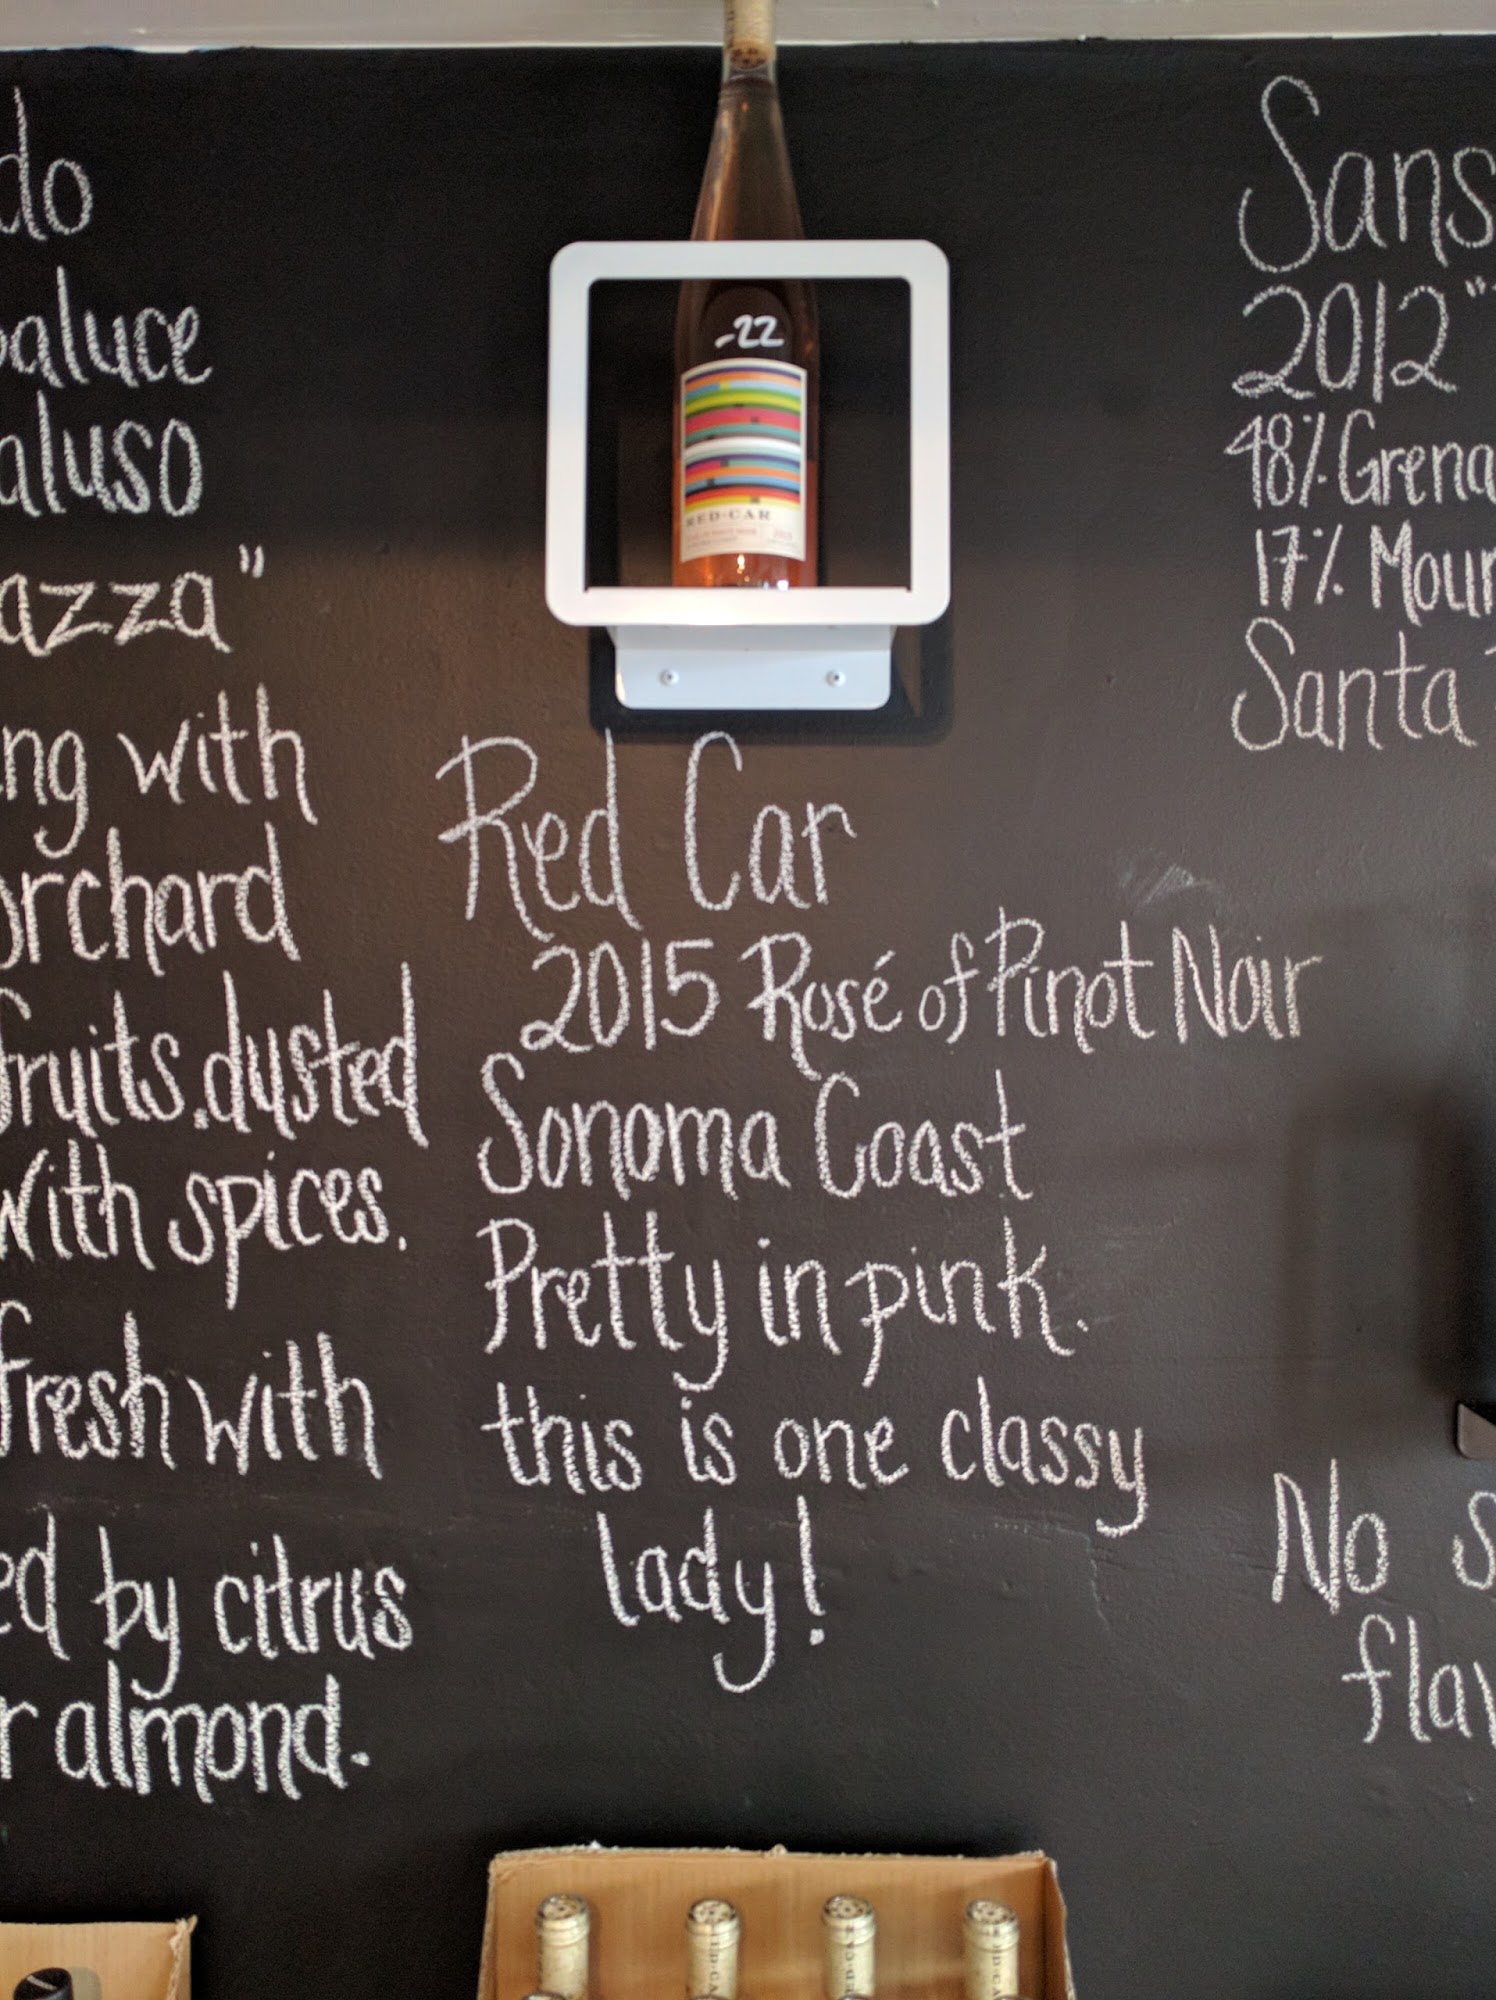 do
aluce
aluso
azza"
ng with
orchard
fruits.dusted
with spices.
fresh with
ed by citrus
r almond.
-22
RED·CAR
Red Car
2015 Rosé of Pinot Noir
Sonoma Coast
Pretty in pink.
this is one classy
lady!
Sans
2012 "
48% Grena
17% Mour
Santa
No s
flav